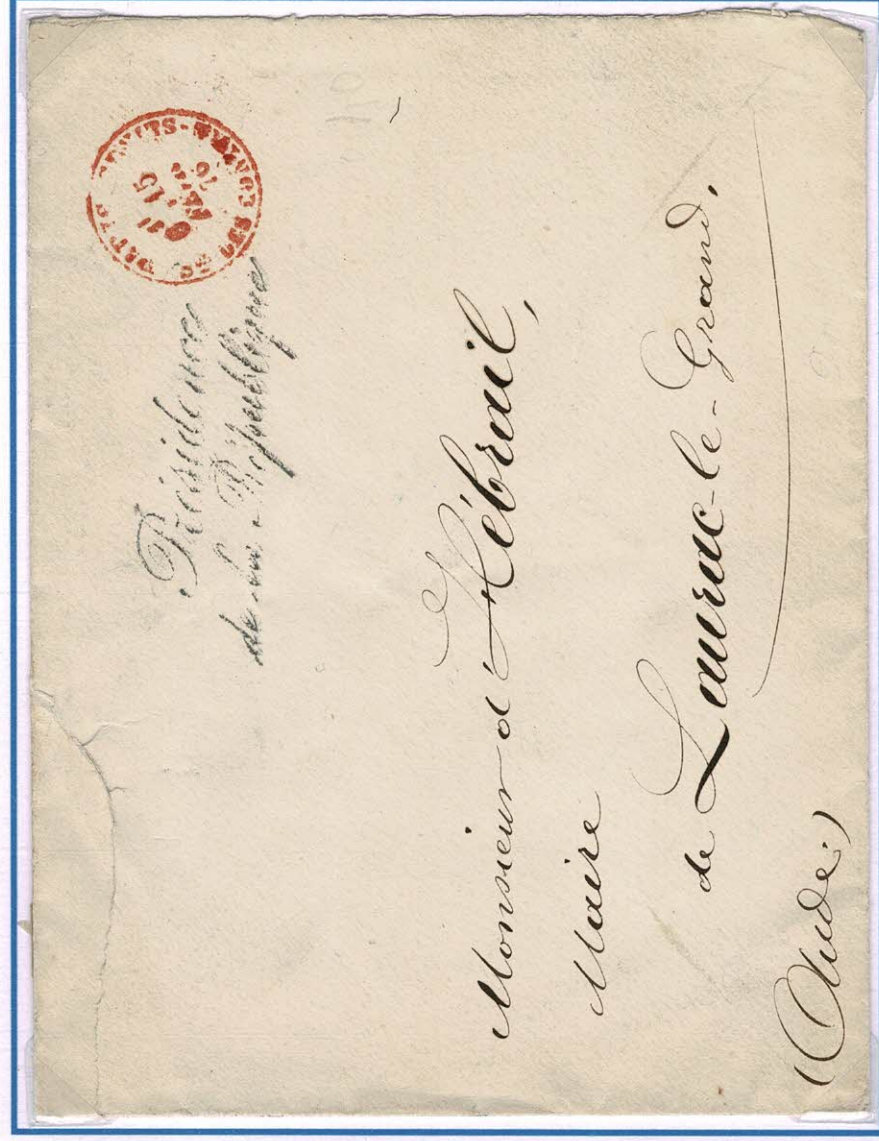 Présidence
de la République
15
76
Monsieur d'Hébrail,
Maire
de Laurac-le-Grand,
(Aude)